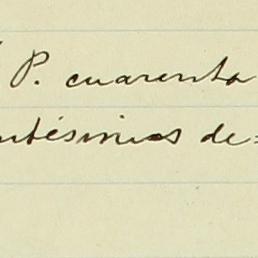 P. cuarenta
ntésimos de=